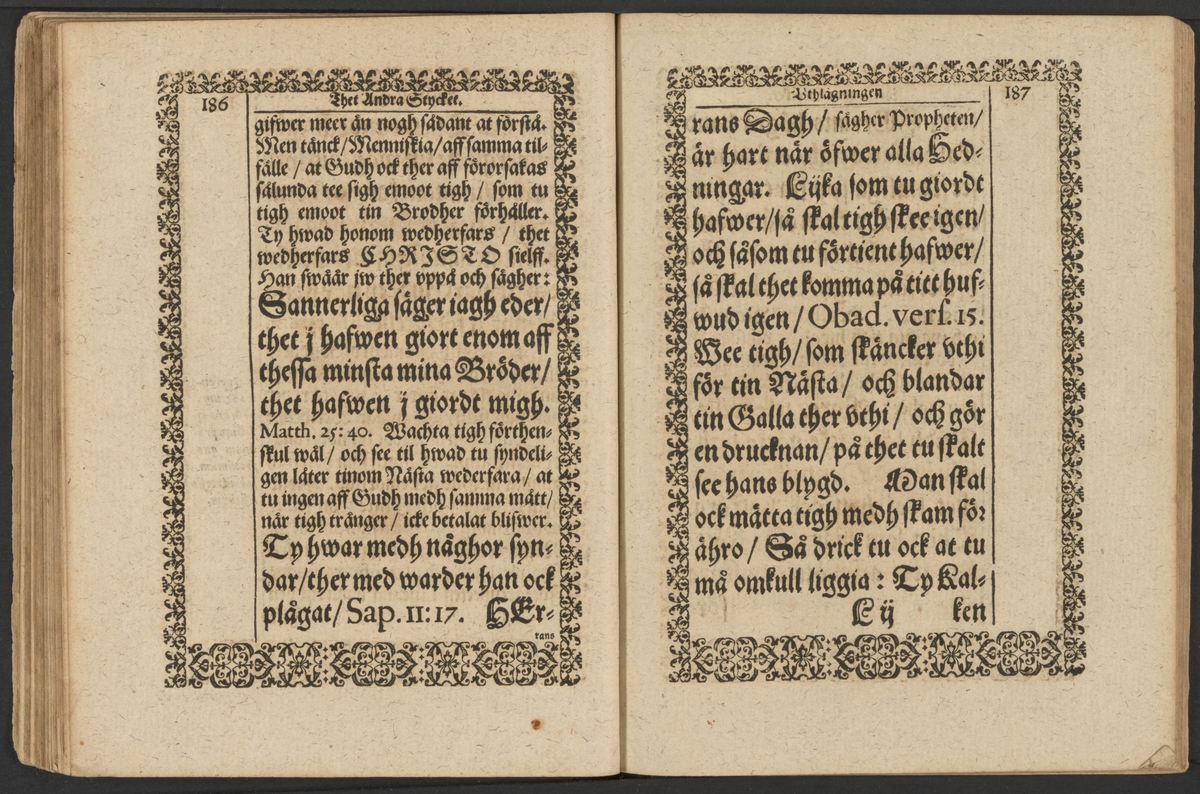 186
Thet Andra Stycket.
gifwer meer än nogh sådant at förstå.
Men tänck/Menniskia/aff samma til-
fälle / at Gudh ock ther aff förorsakas
sålunda tee sigh emoot tigh / som tu
tigh emoot tin Brodher förhåller.
Ty hwad honom wedherfars / thet
wedherfars CHRISTO sielff.
Han swäär jw ther vppå och sägher:
Sannerliga säger iagh eder/
thet j hafwen giort enom aff
thessa minsta mina Bröder/
thet hafwen j giordt migh.
Matth. 25:40. Wachta tigh förthen-
skul wäl/ och see til hwad tu syndeli-
gen låter tinom Nästa wederfara / at
tu ingen aff Gudh medh samma mått/
när tigh tränger / icke betalat blifwer.
Ty hwar medh någhor syn-
dar/ther med warder han ock
plågat/ Sap. 11:17. HEr-
rans
Vthlägningen
187
rans Dagh/ sägher Propheten/
är hart när öfwer alla Hed-
ningar. Lijka som tu giordt
hafwer/så skal tigh skee igen/
och såsom tu förtient hafwer/
så skal thet komma på titt huf-
wud igen / Obad. vers. 15.
Wee tigh/ som skäncker vthi
för tin Nästa/ och blandar
tin Galla ther vthi / och gör
en drucknan/ på thet tu skalt
see hans blygd. Man skal
ock mätta tigh medh skam för
ähro / Så drick tu ock at tu
må omkull liggia : Ty Kal-
L ij
ken